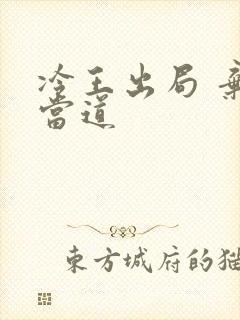 冷王出局 棄
當道
東方城府的貓